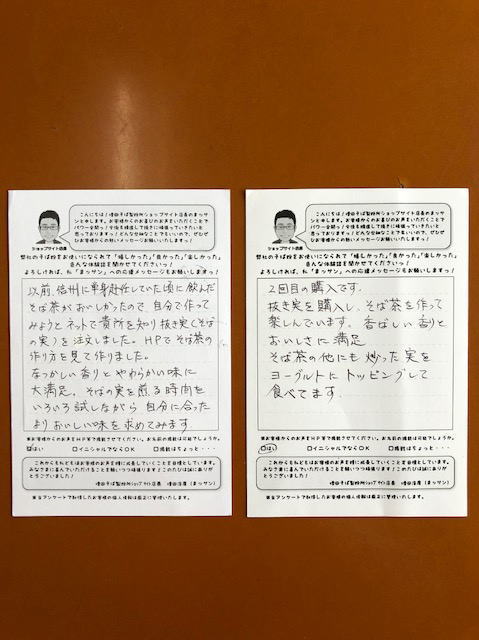 こんにちは!増田そば製粉所ショップサイト店長のまッサ
ンと申します。お客様からのお喜びのお声をいただくことで
パワー全開っ!今後も精進して焼きに頑張っていきたいと
思っております!どんな些細なことでもいいので、ぜひぜ
ひお客様からの熱いメッセージお願いいたしますっ!
ショップサイト店長
弊社のそば粉をお使いになられて「嬉しかった」「良かった」「楽しかった」
なんな体験談を聞かせてくださいっ!
よろしければ、私「まッサン」への応援メッセージもお願いしますっ!
以前、信州に単身赴任していた頃に飲んだ
そば茶がおいしかったので、自分で作って
みようとネットで貴所を知り抜き実(そば
の実)を注文しました。HPでそば茶の
作り方を見て作りました。
なつかしい香りとやわらかい味に
大満足。そばの実を煎る時間を
いろいろ試しながら 自分に合った
よりおいしい味を求めてみます
※お客様からのお声をHP等で掲載させてください。お名前の掲載は可能でしょうか。
はい □イニシャルならOK □掲載はちょっと・・・
これからもわたしどもはお客様のお声を糧に成長していくことを目標としています。
みなさまに喜んでいただけることを願いつつ頑張ります!このたびは誠にありが
とうございました!
増田そば製粉所ショップサイト店長 増田浩庸(まッサン)
※当アンケートで取得したお客様の個人情報は厳正に管理いたします。
こんにちは!増田そば製粉所ショップサイト店長のまッサ
ンと申します。お客様からのお喜びのお声をいただくことで
パワー全開っ!今後も精進して焼きに頑張っていきたいと
思っております!どんな些細なことでもいいので、ぜひぜ
ひお客様からの熱いメッセージお願いいたしますっ!
ショップサイト店長
弊社のそば粉をお使いになられて「嬉しかった」「良かった」「楽しかった」
なんな体験談を聞かせてくださいっ!
よろしければ、私「まッサン」への応援メッセージもお願いしますっ!
2回目の購入です。
抜き実を購入し、そば茶を作って
楽しんでいます。香ばしい香りと
おいしさに満足
そば茶の他にも炒った実を
ヨーグルトにトッピングして
食べてます.
※お客様からのお声をHP等で掲載させてください。お名前の掲載は可能でしょうか。
□はい □イニシャルならOK □掲載はちょっと・・・
これからもわたしどもはお客様のお声を糧に成長していくことを目標としています。
みなさまに喜んでいただけることを願いつつ頑張ります!このたびは誠にありが
とうございました!
増田そば製粉所ショップサイト店長 増田浩庸(まッサン)
※当アンケートで取得したお客様の個人情報は厳正に管理いたします。